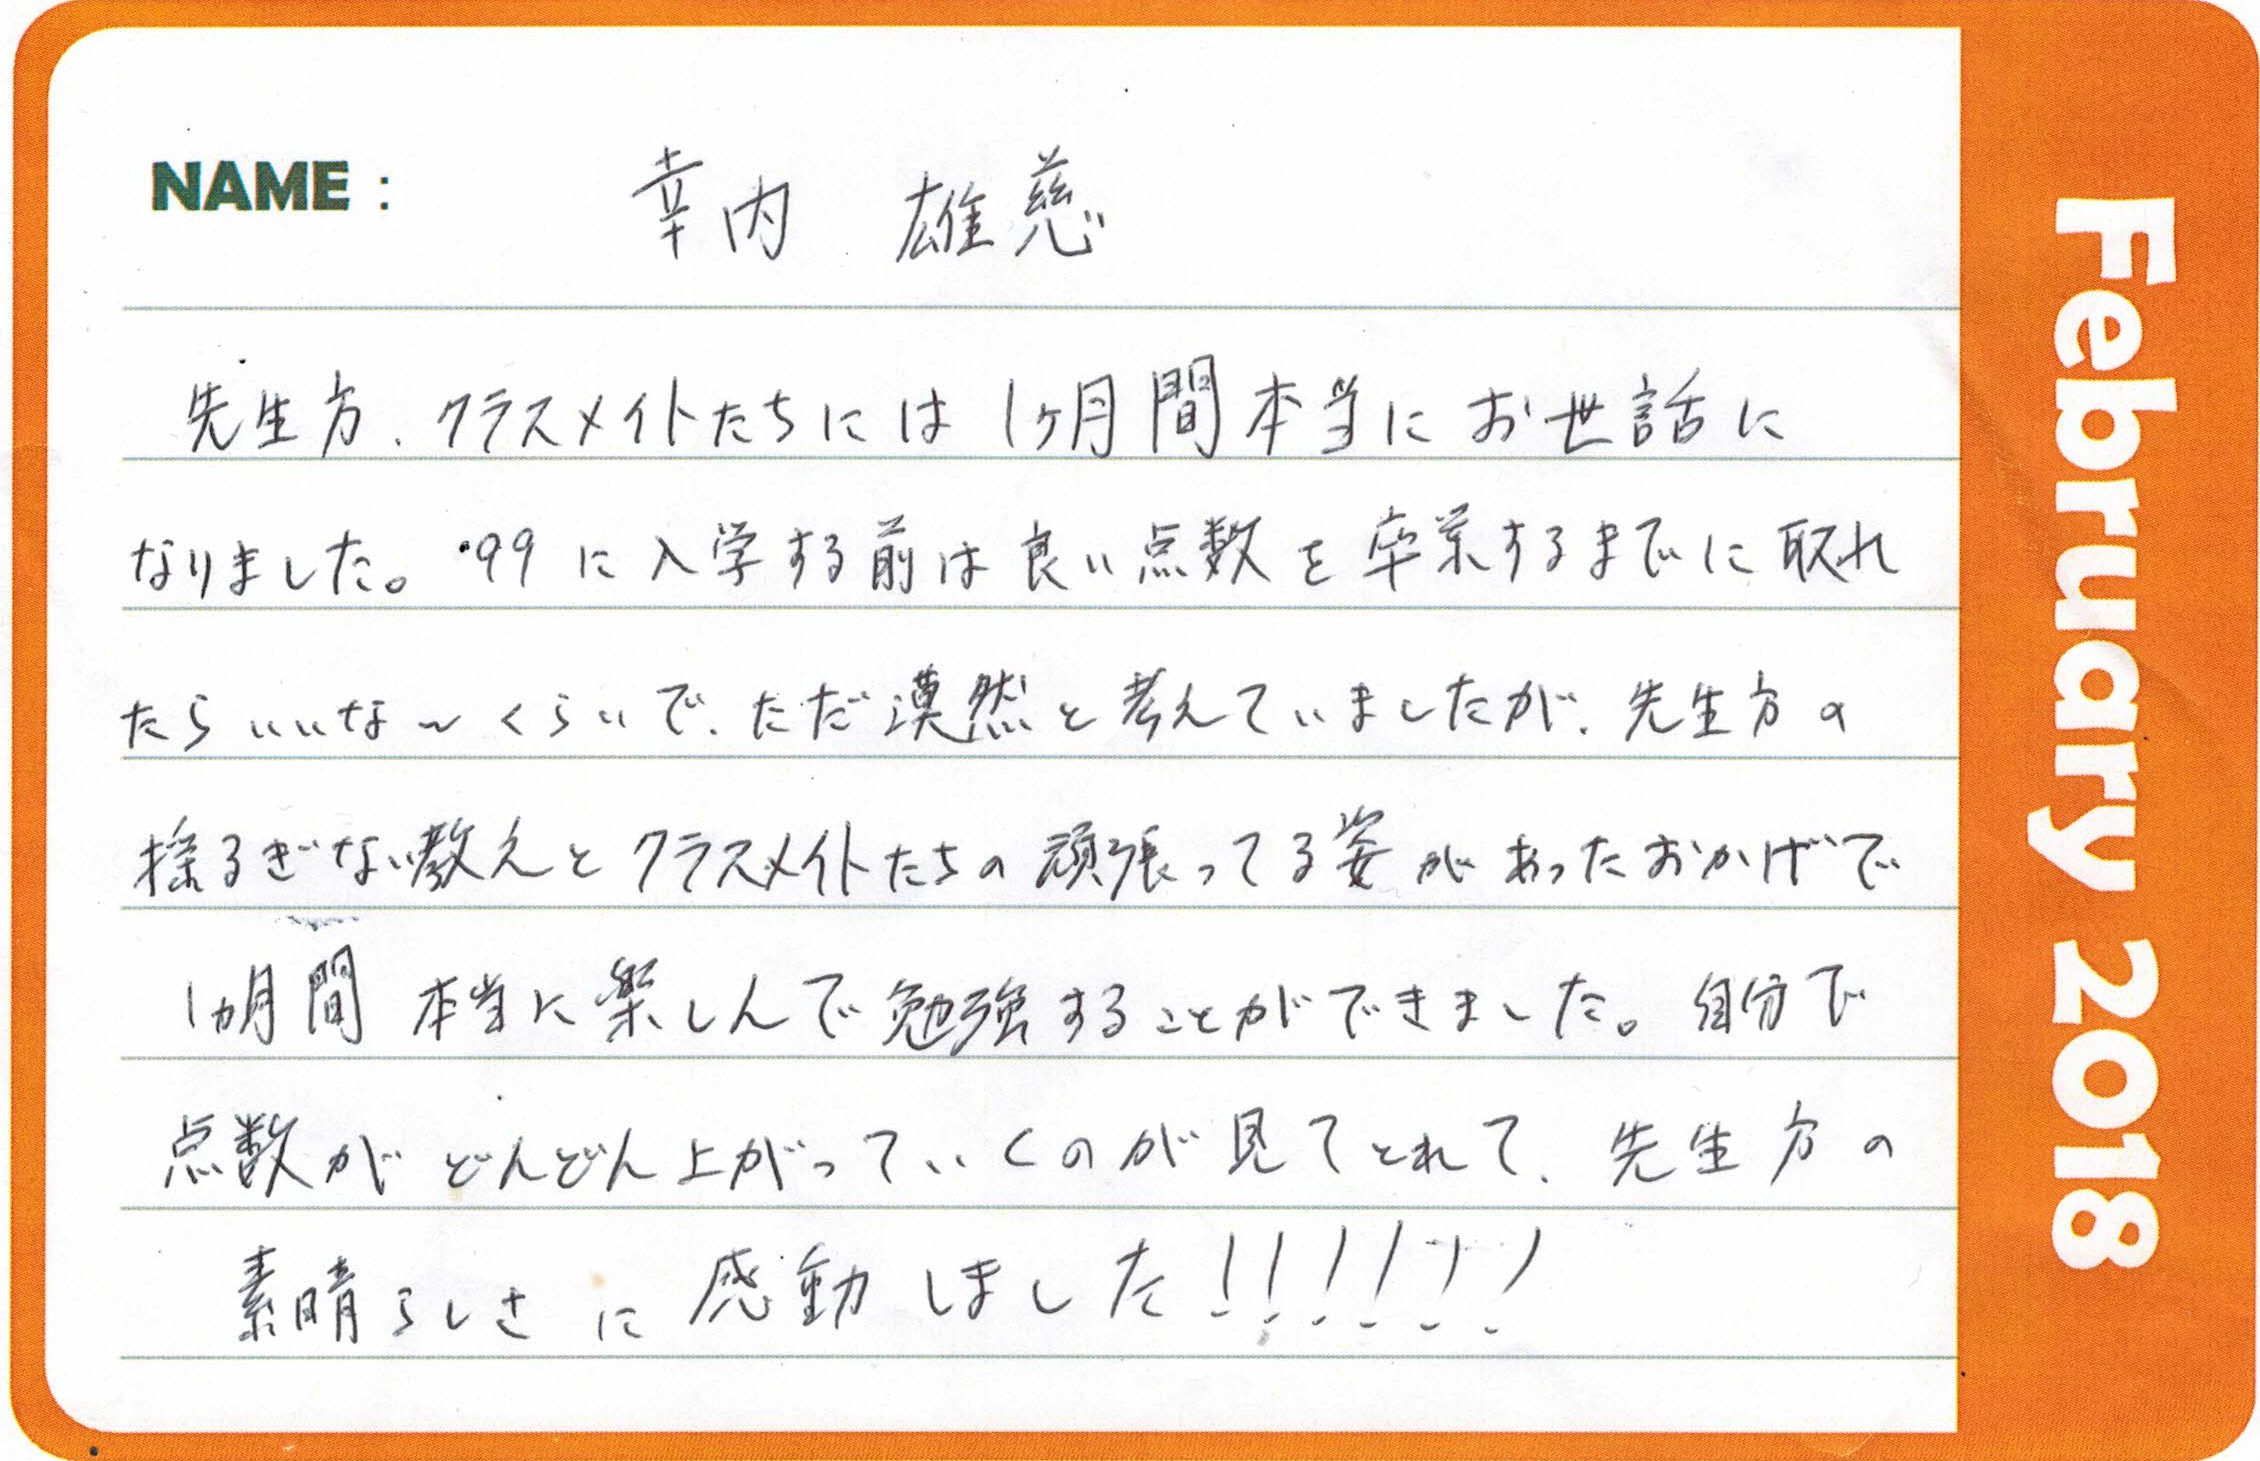 NAME :
幸内 雄慈
先生方、クラスメイトたちには1ヶ月間本当にお世話に
なりました。'99に入学する前は良い点数を卒業するまでに取れ
たらいいな〜くらいで、ただ漠然と考えていましたが、先生方の
揺るぎない教えとクラスメイトたちの頑張ってる姿があったおかげで
1ヵ月間本当に楽しんで勉強することができました。自分で
点数がどんどん上がっていくのが見てとれて、先生方の
素晴らしさに感動しました!!!!!!!
February 2018